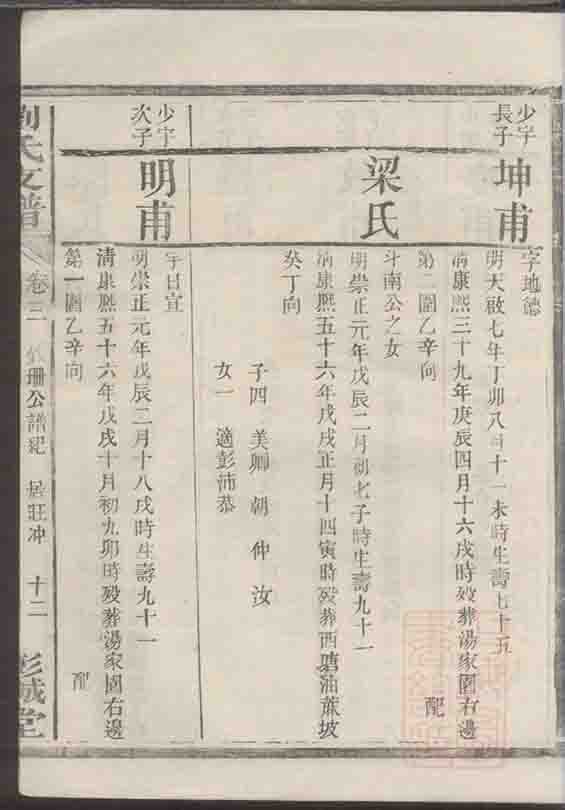 少宇長子
坤甫
字地德
明天啟七年丁卯八月十一未時生壽七十五
清康熙三十九年庚辰四月十六戌時歿葬湯家園右邊
第二圍乙辛向
配
梁氏
斗南公之女
明崇正元年戊辰二月初七子時生壽九十一
清康熙五十六年戊戌正月十四寅時歿葬西塘油蔴坡
癸丁向
子四 美卿 朝 仲 汝
女一 適彭沛恭
少宇次子
明甫
字日宣
明崇正元年戊辰二月十八戌時生壽九十一
清康熙五十六年戊戌十月初九卯時歿葬湯家園右邊
第一圍乙辛向
配
劉氏支譜
卷三
珊公譜紀 居莊冲
十二
彭城堂